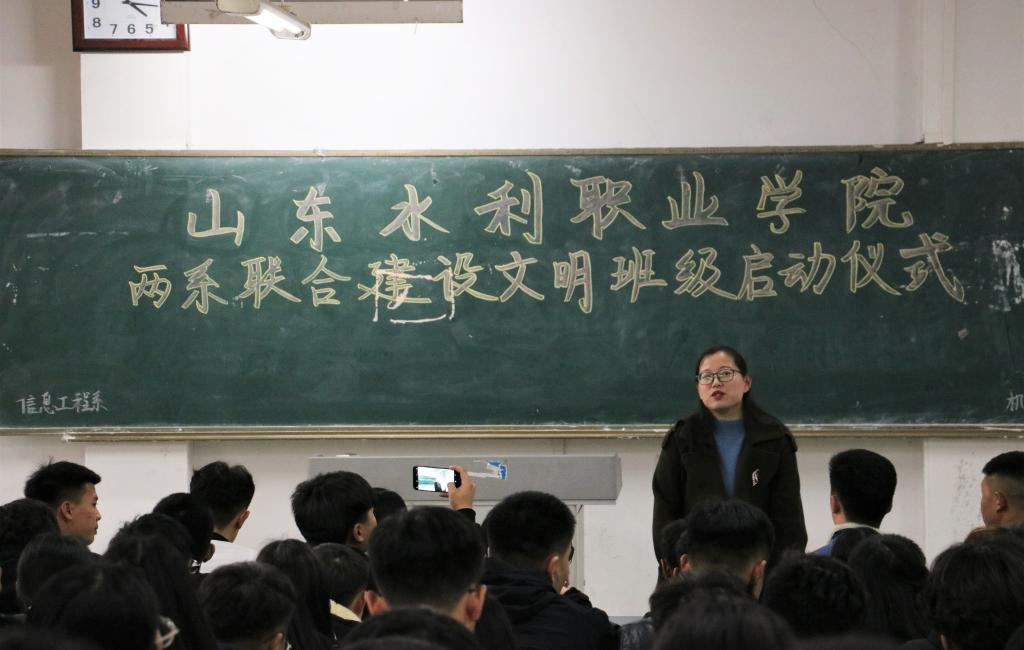 9
8 7 6 5
山东水利职业学院
两系联合建设文明班级启动仪式
信息工程系
机